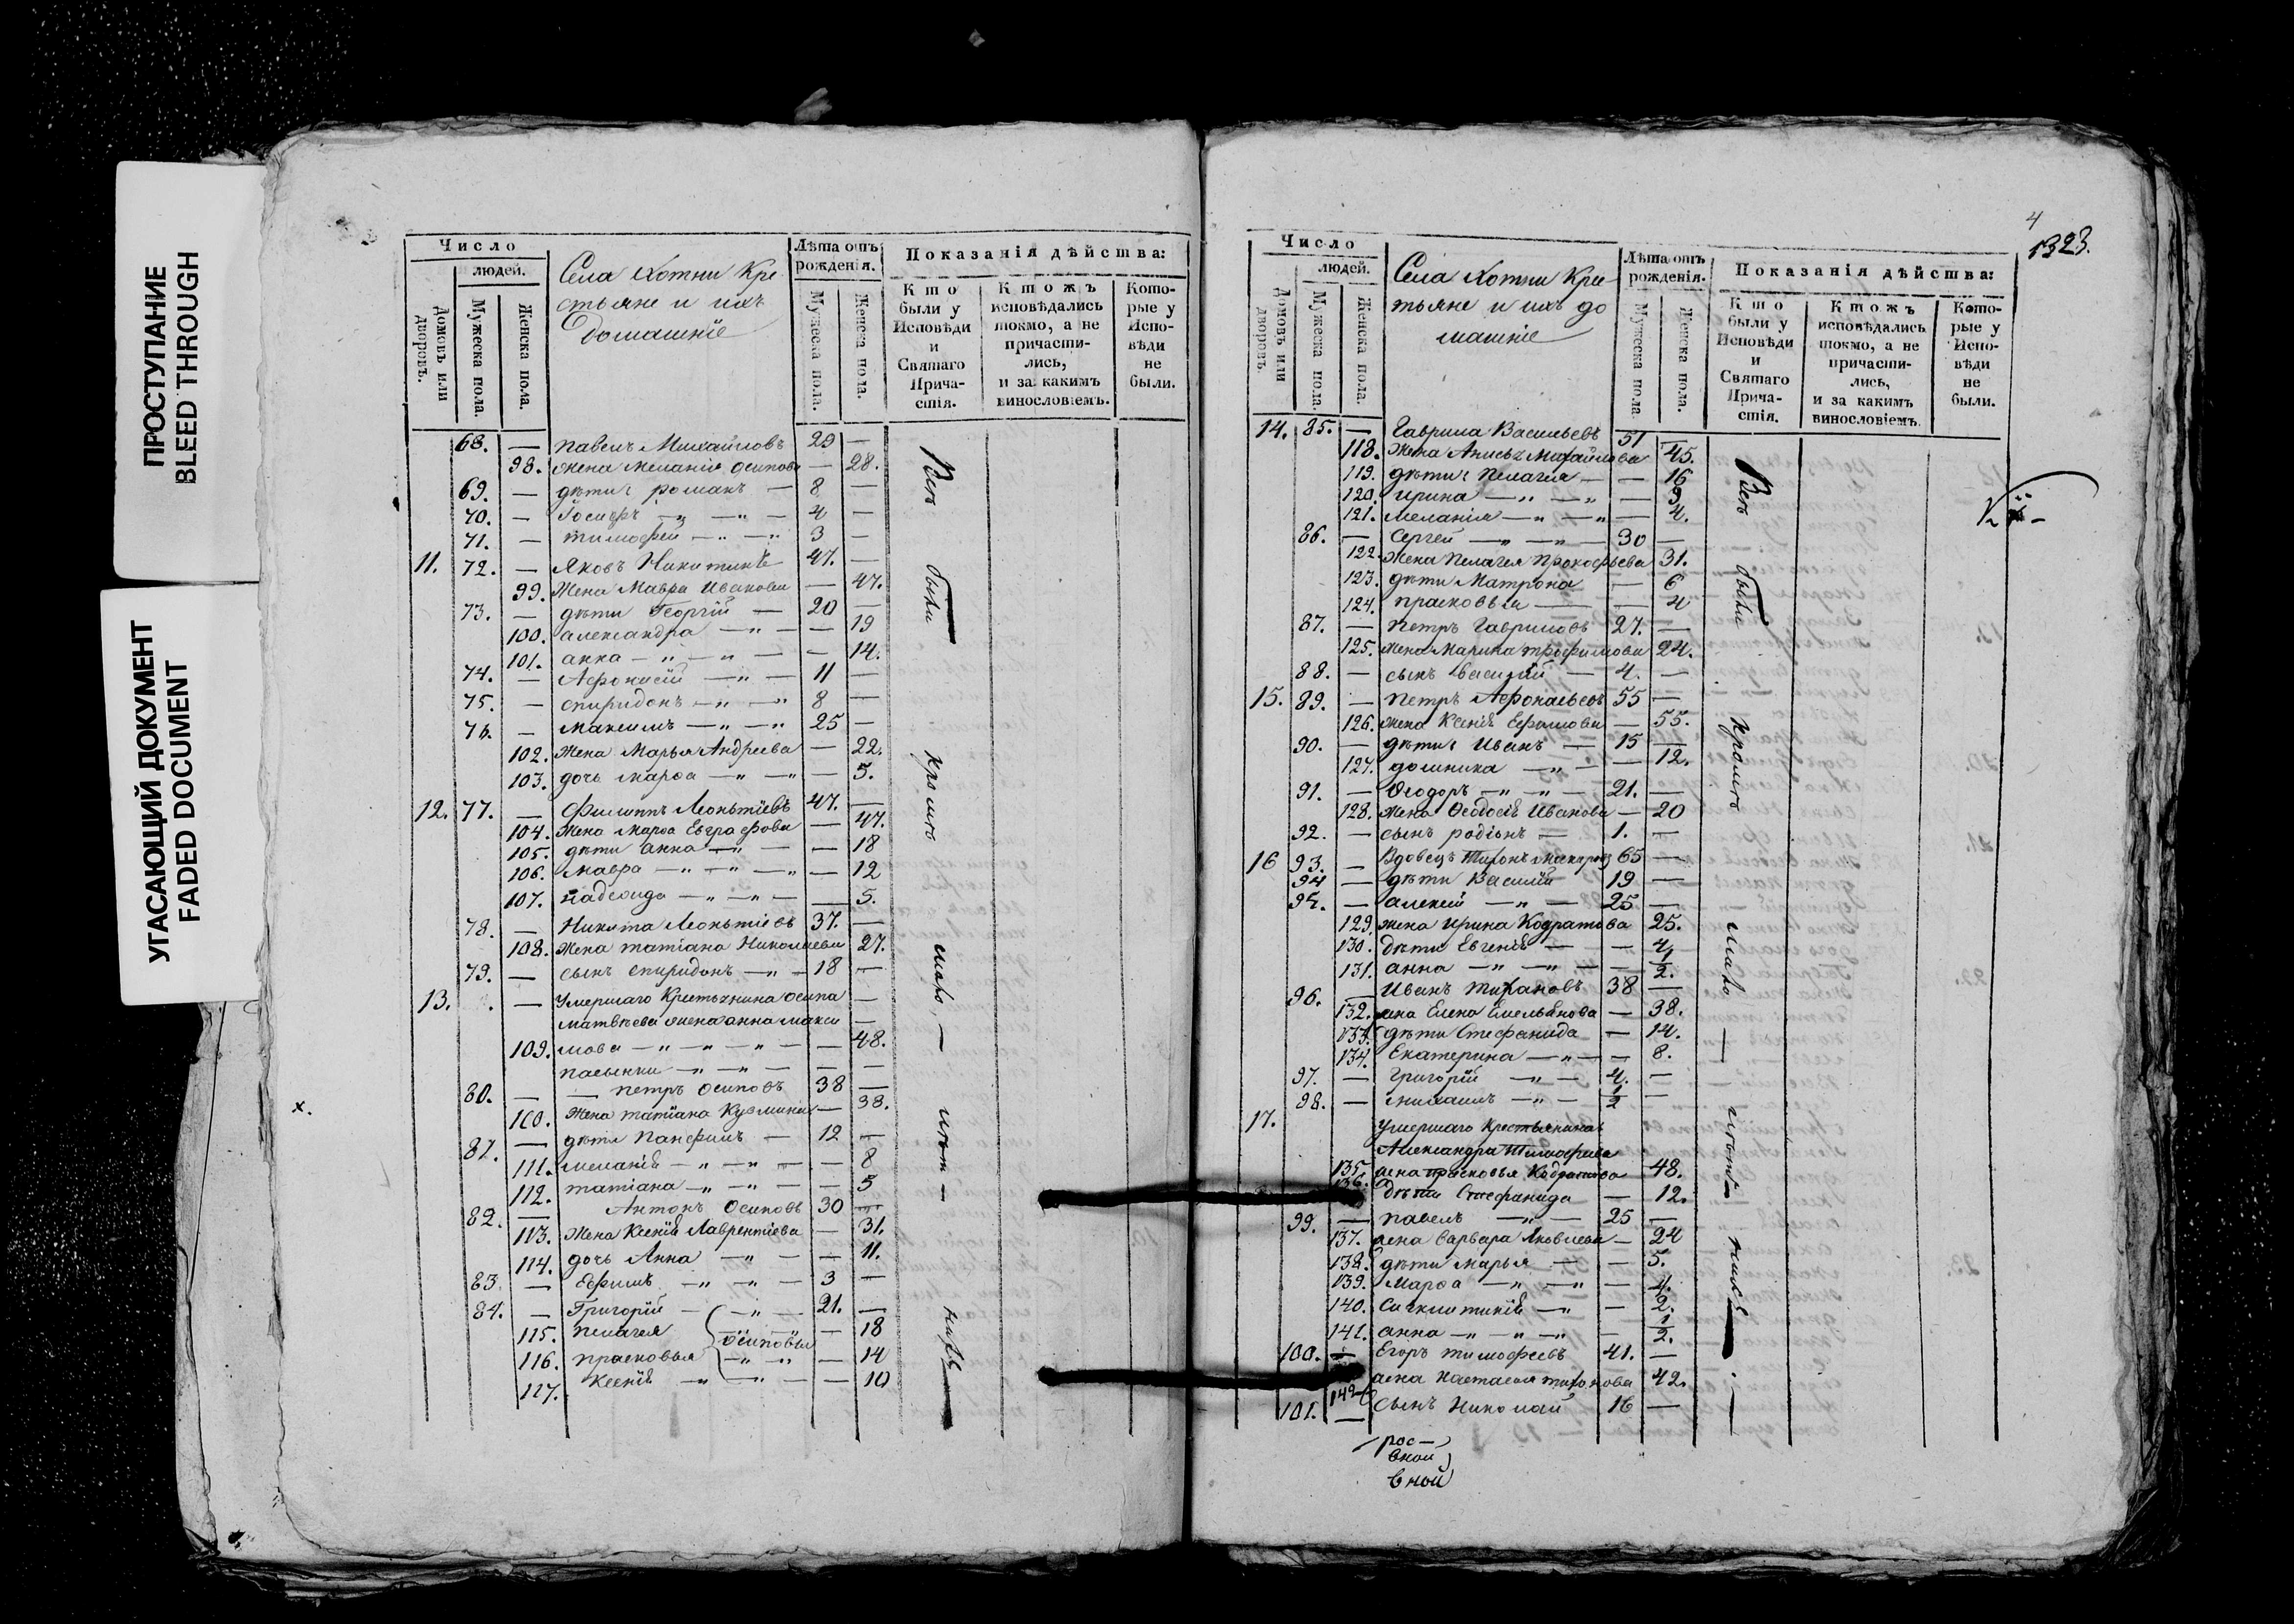 ПРОСТУПАНИЕ
BLEED THROUGH
УГАСАЮЩИЙ ДОКУМЕНТ
FADED DOCUMENT
Число
людей.
Домовъ или дворовъ.
Мужеска пола.
Женска пола.
Села Хотни Кре
стьяне и ихъ
Домашніе
Лѣта отъ рожденія.
Мужеска пола.
Женска пола.
Показанія дѣйства:
Кто были у Исповѣди и Святаго Причастія.
Ктожъ исповѣдались токмо, а не причастились, и за какимъ винословіемъ.
Которые у Исповѣди не были.
68. — Павелъ Михайловъ 29 —
98. Жена Меланія Осипова — 28.
69. — дѣти: романъ — 8 —
70. — Іосифъ —„— —„— 4 —
71. — тимофей —„— —„ 3 —
11. 72. — Яковъ Никитинъ 47. —
99. Жена Мавра Иванова — 47.
73. — дѣти Георгій — 20 —
100. александра —„— — 19
101. анна —„—„— — 14.
74. — Афонасій —„— 11 —
75. — спиридонъ —„— —„ 8 —
76. — максимъ —„— —„ 25 —
102. Жена Марья Андреева — 22.
103. дочь марѳа —„— —„ — 5.
12. 77. — Филиппъ Леонтіевъ 47. —
104. Жена Марѳа Евграфова — 47.
105. дѣти анна —„— — 18
106. мавра —„— —„— —„ — 12
107. надежда —„— —„— — 5.
78. — Никита Леонтіевъ 37. —
108. Жена татіана Николаева 27.
79. — сынъ спиридонъ —„— 18 —
13. — Умершаго Крестьянина осипа —
матвѣева жена анна макси —
109. мова —„—„—„— — 48.
пасынки —„— —„— — —
80. — — петръ осиповъ 38 —
110. Жена татіана Кузмина — 38.
81. — дѣти Панфилъ — 12 —
111. меланія —„— —„— — 8
112. татіана —„— —„— — 5
82. — Антонъ Осиповъ 30 —
113. Жена Ксенія Лаврентіева — 31.
114. дочь Анна —„— — 11.
83. — Ефимъ —„— —„— 3 —
84. — Григорій —„— 21. —
115. пелагея осиповы — 18
116. прасковья —„— —„ — 14
117. ксенія —„— — 10
Всѣ были кромѣ
х.
Число
людей.
Домовъ или дворовъ.
Мужеска пола.
Женска пола.
Села Хотни Кре-
тьяне и ихъ до
машніе
Лѣта отъ рожденія.
Мужеска пола.
Женска пола.
Показанія дѣйства:
Кто были у Исповѣди и Святаго Причастія.
Ктожъ исповѣдались токмо, а не причастились, и за какимъ винословіемъ.
Которые у Исповѣди не были.
4
1323.
14. 85. — Гаврила Васильевъ 51 —
118. Жена Анисья Михайлова 45.
119. дѣти: Пелагея — — 16
120. ирина —„— —„— — 9
121. меланія —„— —„ — 4.
86. — Сергей —„— —„— 30 —
122. Жена Пелагея Прокофьева 31.
123. дѣти Матрона — 6
124. прасковья — — 4
87. — Петръ Гавриловъ 27. —
125. жена Марина трофимова 24.
88. — сынъ василій — 4. —
15. 89. — Петръ Афонасьевъ 55 —
126. жена Ксенія Ефимова — 55.
90. — дѣти: Иванъ — 15 —
127. домника —„— — 12.
91. — Ѳеодоръ —„— —„— 21. —
128. жена Ѳеодосія Иванова — 20
92. — сынъ родіонъ — 1. —
16 93. — Вдовецъ Тихонъ макаровъ 65 —
94 — дѣти Василій 19 —
95. — алексей —„— 25 —
129. жена ирина Кодратова 25.
130. дѣти Евгенія — — 4
131. анна —„— —„— — 1/2.
96. — Иванъ Тихановъ 38 —
132. жена Елена Емельянова — 38.
133. дѣти Стефанида — 14.
134. Екатерина —„— — 8.
97. — григорій —„— 4. —
98. — михаилъ —„— 1/2 —
17. Умершаго Крестьянина
Александра Тимофеева
135. жена прасковья Кодратова 48.
136. дѣти Стефанида — 12.
99. — павелъ —„— 25 —
137. жена варвара Яковлева — 24
138. дѣти марья — — 5.
139. Марѳа —„— —„— — 4.
140. Синклитикія —„ — 2.
141. анна —„— —„— —„ — 1/2.
100. — Егоръ тимофеевъ 41. —
142 жена настасья тихонова 42.
101. — сынъ николай 16 —
Всѣ были кромѣ
рос—
вной
вной